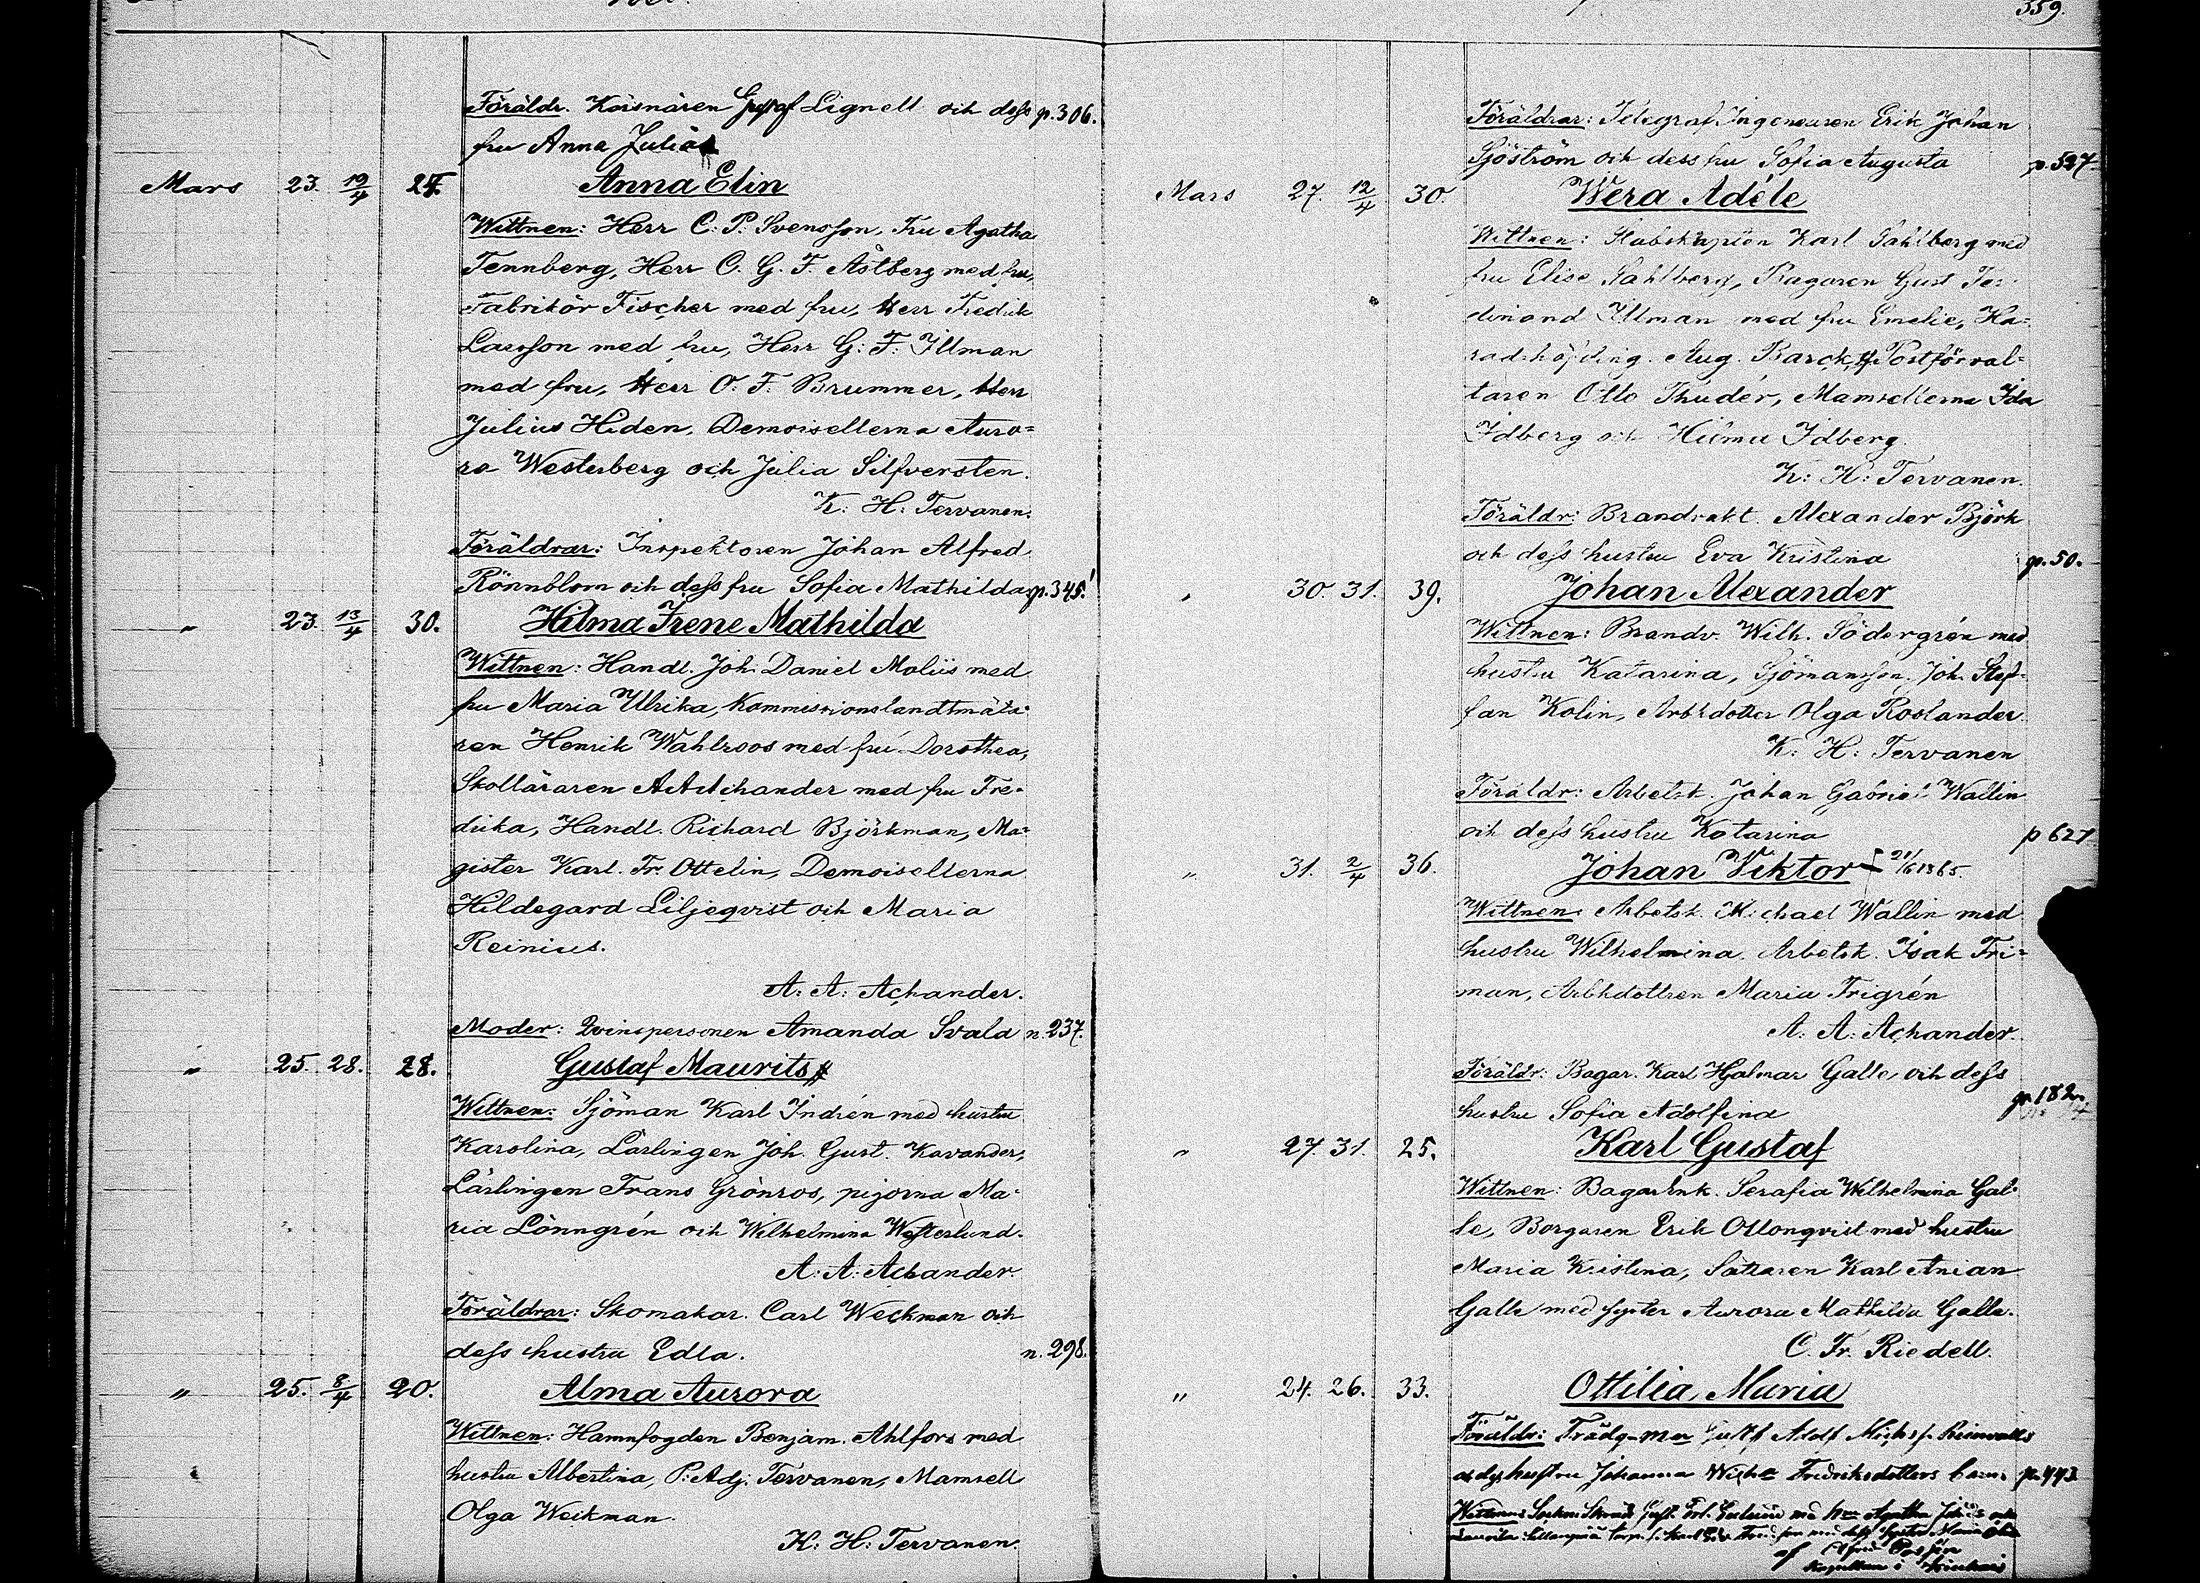 359.
Föräldr. Körsnären Gustaf Lignell och dess p. 306.
fru Anna Julia
Mars 23. 19/4 24. Anna Elin
Wittnen: Herr C. P. Svensson, Fru Agatha
Tennberg, Herr C. G. F. Åstberg med fru,
Fabrikör Fischer med fru, Herr Fredrik
Larsson med fru, Herr G. F. Illman
med fru, Herr O. F. Brummer, Herr
Julius Hiden, Demoisellerna Auro-
ra Westerberg och Julia Silfversten.
K. H. Tervanen.
Föräldrar: Inspektoren Johan Alfred
Rönnblom och dess fru Sofia Mathilda p. 345.
" 23. 13/4 30. Hilma Irene Mathilda
Wittnen: Handl. Joh. Daniel Moliis med
fru Maria Ulrika, Kommissionslandtmäta-
ren Henrik Wahlroos med fru Dorothea,
Skolläraren A A Achander med fru Fre-
drika, Handl. Richard Björkman, Ma-
gister Karl. Fr. Ottelin, Demoisellerna
Hildegard Liljeqvist och Maria
Reinius.
A. A. Achander.
Moder: Qvinspersonen Amanda Svald n. 237.
" 25. 28. 28. Gustaf Maurits
Wittnen: Sjöman Karl Indrén med hustru
Karolina, Lärlingen Joh. Gust. Kavander,
Lärlingen Frans Grönros, pigorna Ma-
ria Lönngrén och Wilhelmina Westerlund.
A. A. Achander.
Föräldrar: Skomakar. Carl Weckman och
dess hustru Edla. n. 298.
" 25. 8/4 20. Alma Aurora
Wittnen: Hamnfogden Benjam. Ahlfors med
hustru Albertina, P. Adj. Tervanen, Mamsell
Olga Weckman.
K. H. Tervanen.
Föräldrar: Telegraf. Ingeneuren Erik Johan
Sjöström och dess fru Sofia Augusta p. 527
Mars 27. 12/4 30. Wera Adéle
Wittnen: Stabskapten Karl Sahlberg med
fru Elise Sahlberg, Bagaren Gust Fer-
dinand Illman med fru Emelie, Hä-
radshöfding. Aug. Barck, Postförval-
taren Otto Thuder, Mamsellerna Ida
Idberg och Hilma Idberg.
K. H. Tervanen.
Föräldr: Brandvakt. Alexander Björk
och dess hustru Eva Kristina p. 50.
" 30. 31. 39. Johan Alexander
Wittnen: Brandv. Wilh. Södergrén med
hustru Katarina, Sjömansson. Joh. Stef-
fan Kolin, Arbkdotter Olga Roslander.
K. H. Tervanen
Föräldr: Arbetsk. Johan Gabriel Wallin
och dess hustru Katarina p 627
" 31. 2/4 36. Johan Viktor † 21/6 1865.
Wittnen: Arbetsk. Michael Wallin med
hustru Wilhelmina. Arbetsk. Isak Fri-
man, Arbkdottren Maria Frigrén
A. A. Achander.
Föräldr: Bagar. Karl Hjalmar Galle och dess
hustru Sofia Adolfina p. 182.
" 27. 31. 25. Karl Gustaf
Wittnen: BagarEnk. Serafia Wilhelmina Gal-
le, Borgaren Erik Ollonqvist med hustru
Maria Kristina, Sättaren Karl Anian
Galle med syster Aurora Mathilda Galle.
C. Fr. Riedell.
" 24. 26. 33. Ottilia Maria
Föräldr: Adolf
hustru Johanna Fredriksdotters barn p. 443
Wittnen:
af